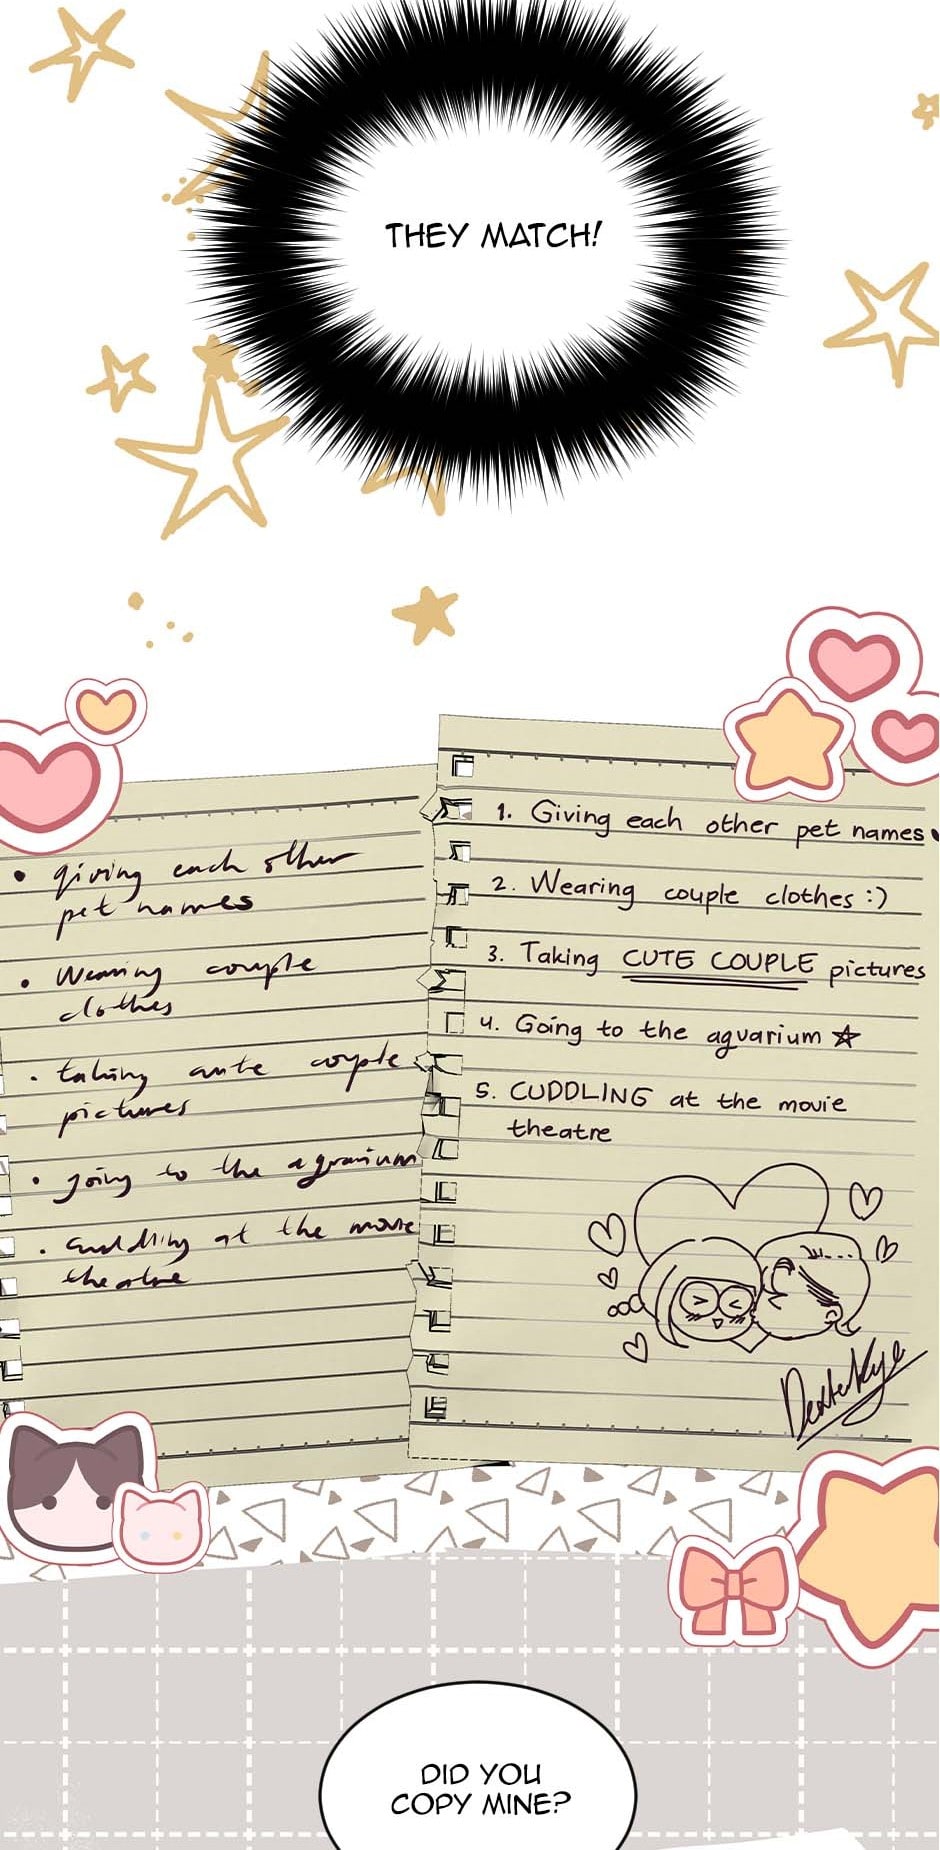 THEY MATCH!
• giving each other
pet names
• Wearing couple
clothes
• taking cute couple
pictures
• going to the aquarium
• cuddling at the movie
theatre
1. Giving each other pet names
2. Wearing couple clothes :)
3. Taking CUTE COUPLE pictures
4. Going to the aquarium ☆
5. CUDDLING at the movie
theatre
DID YOU
COPY MINE?